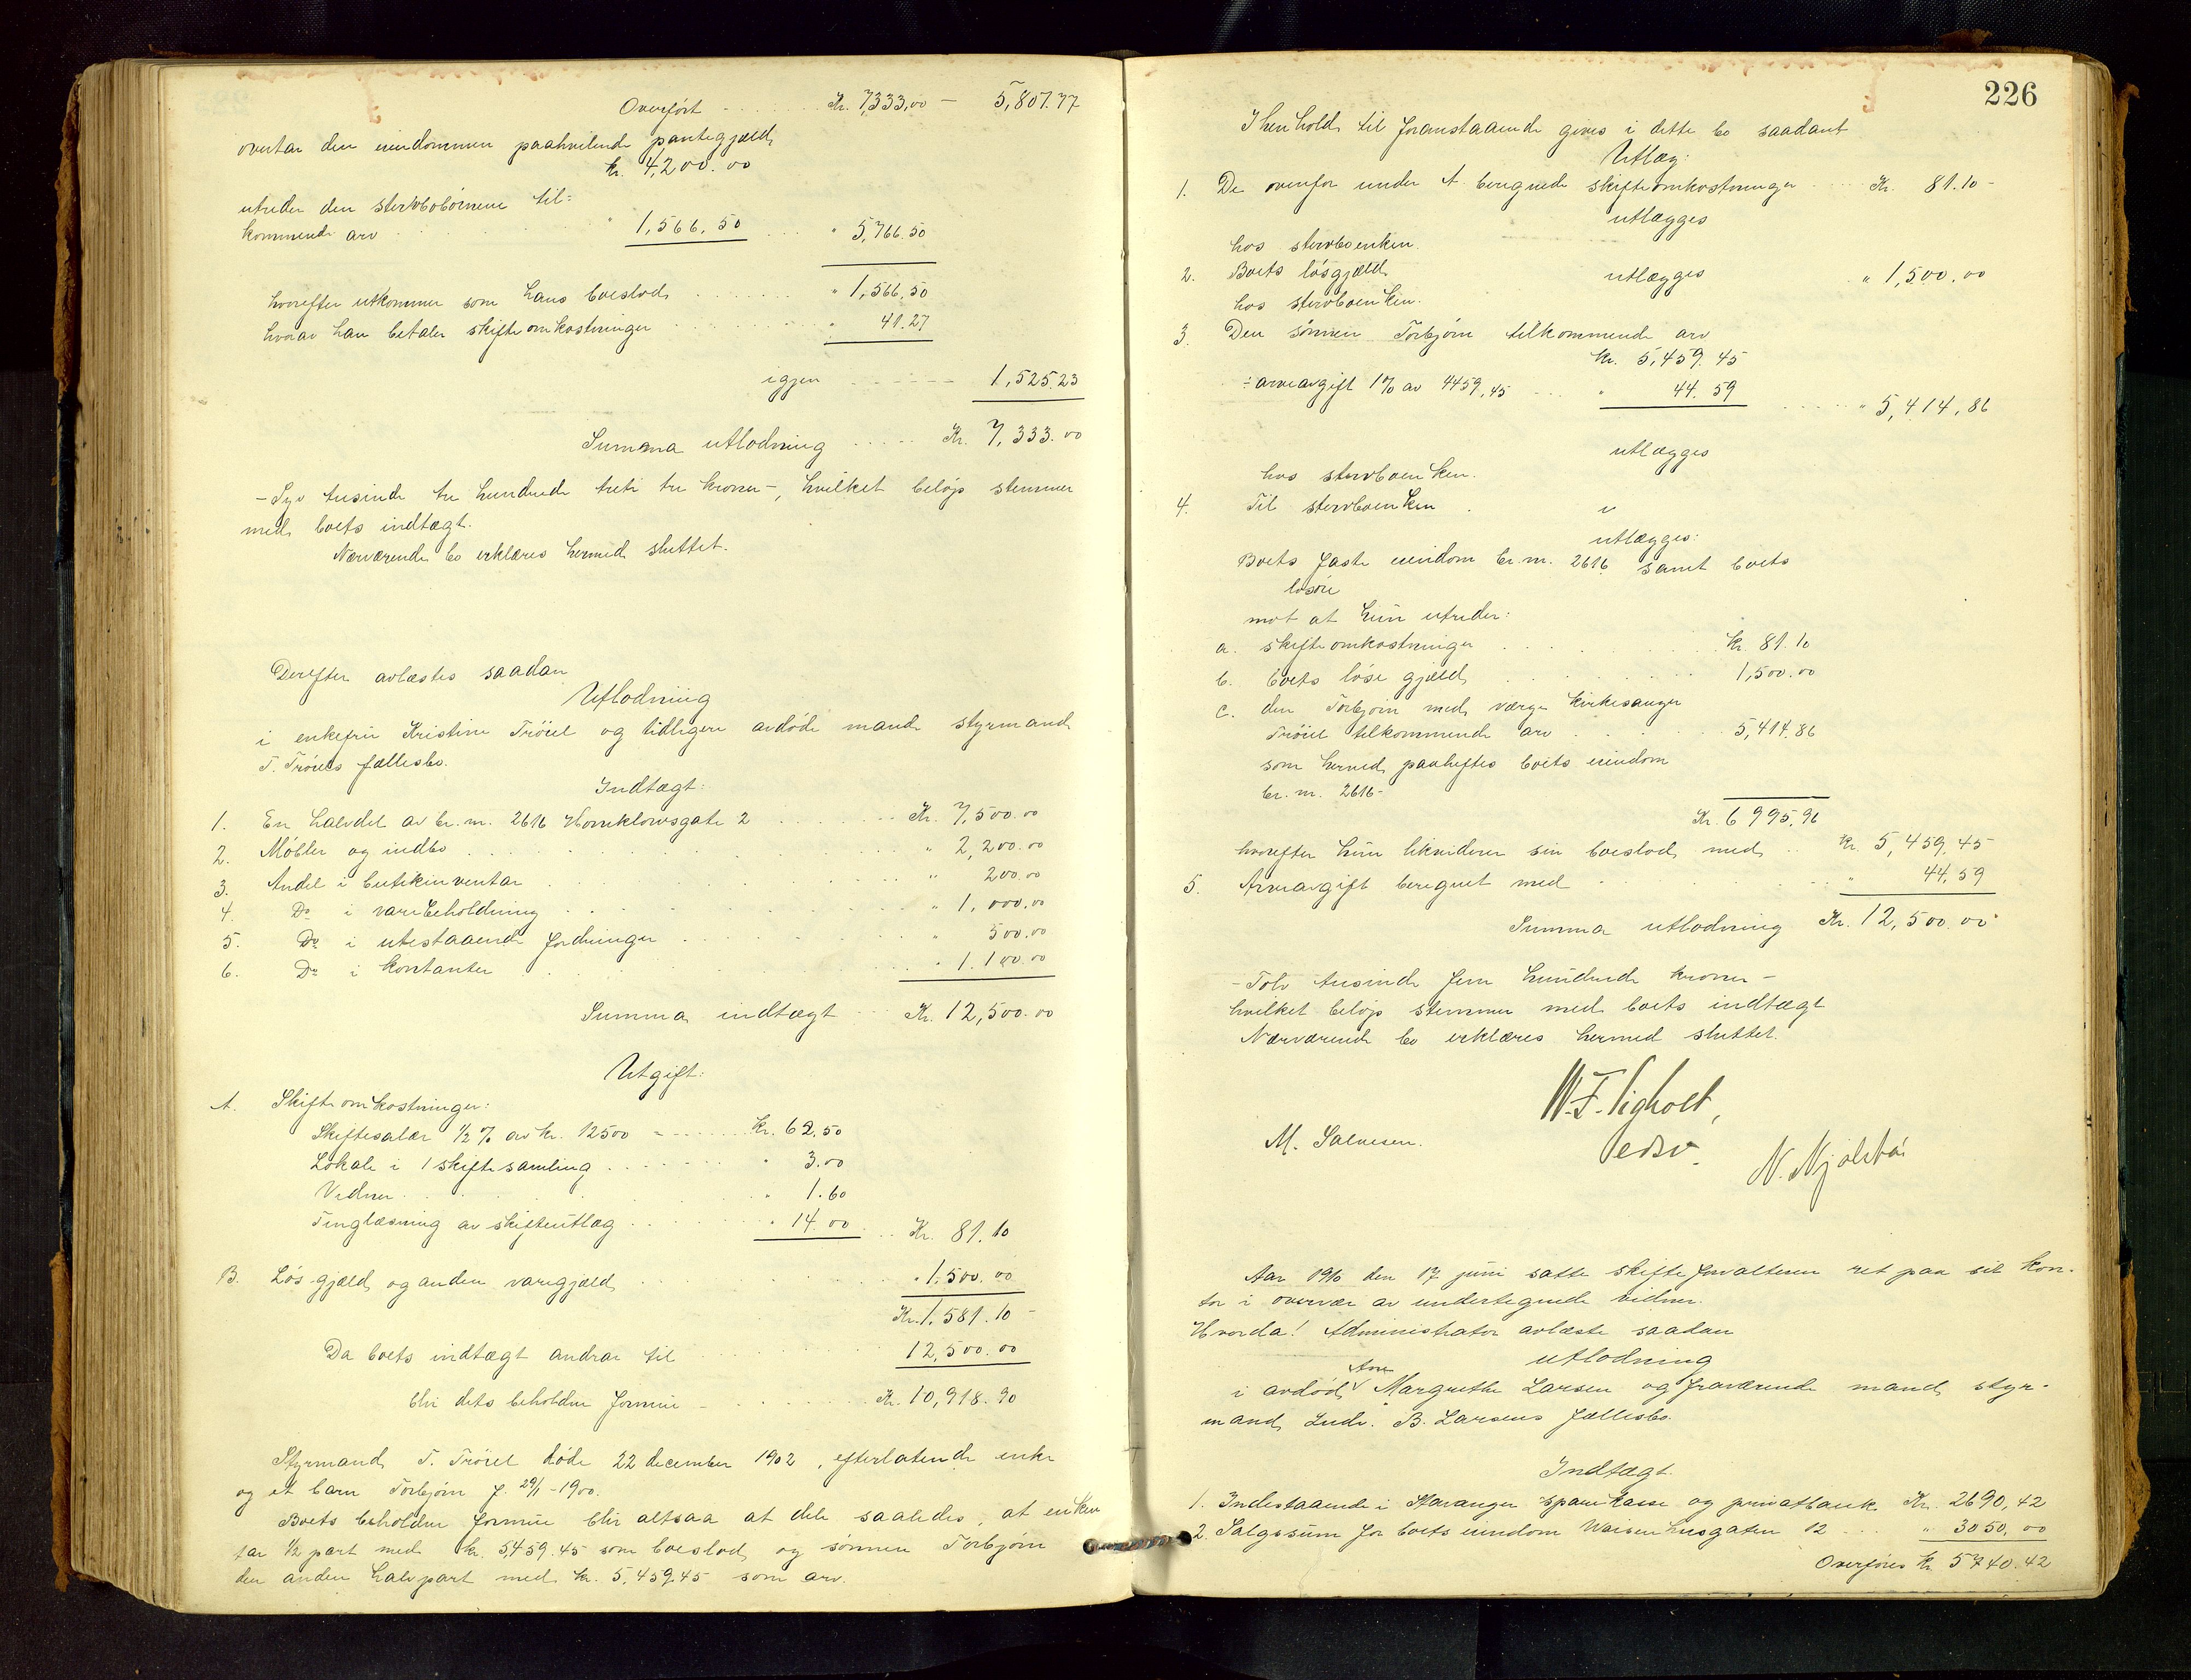 Overført Kr. 7,333,00 — 5,807.77
overtar den eiendommen paahvilende pantegjæld
kr. 4,200.00
utreder den stervbobørnene til=
kommende arv " 1,566,50 " 5,766.50
hvorefter utkommer som hans boeslod " 1,566,50
hvorav han betaler skifteomkostninger " 41.27
igjen 1,525.23
Summa utlodning Kr. 7,333.00
- Syv tusinde tre hundrede treti tre kroner -, hvilket beløp stemmer
med boets indtægt.
Nærværende bo erklæres hermed sluttet.
Derefter avlæstes saadan
Utlodning
i enkefru Kristine Trøiel og tidligere avdøde mand styrmand
T. Trøiels fællesbo.
Indtægt:
1. En halvdel av br. nr. 2616 Hornklovesgate 2 Kr. 7,500.00
2. Møbler og indbo " 2,200.00
3. Andel i butikinventar " 200.00
4. Do i varebeholdning " 1,000.00
5. Do i utestaaende fordringer " 500.00
6. Do i kontanter " 1.100.00
Summa indtægt Kr. 12,500.00
Utgift:
A. Skifteomkostninger:
Skiftesalær 1/2 % av kr. 12500 - Kr. 62.50
Lokale i 1 skiftesamling " 3.00
Vidner " 1.60
Tinglæsning av skifteutlæg " 14.00 Kr. 81.10
B. Løs gjæld og anden varegjæld " 1,500.00
Kr. 1,581.10 -
Da boets indtægt andrar til 12,500.00
blir dets beholdne formue - Kr. 10,918.90
Styrmand T. Trøiel døde 22 december 1902, efterlatende enke
og et barn Torbjørn f. 29/1 - 1900.
Boets beholdne formue blir altsaa at dele saaledes, at enken
tar 1/2 part med kr. 5,459.45 som boeslod og sønnen Torbjørn
den anden halvpart med kr. 5,459.45 som arv.
226
I henhold til foranstaaende gives i dette bo saadant
Utlæg:
1. De ovenfor under A beregnede skifteomkostninger Kr. 81.10 -
utlægges
hos stervboenken.
2. Boets løsgjæld utlægges " 1,500.00
hos stervboenken.
3. Den sønnen Torbjørn tilkommende arv
kr. 5,459.45
÷ arveavgift 1% av 4459,45 " 44.59 " 5,414,86
utlægges
hos stervboenken.
4. Til stervboenken
utlægges:
Boets faste eiendom br. nr. 2616 samt boets
løsøre
mot at hun utreder:
a. skifteomkostninger Kr. 81.10
b. boets løse gjæld 1,500.00
c. den Torbjørn med værge kirkesanger
Trøiel tilkommende arv 5,414.86
som herved paaheftes boets eiendom
br. nr. 2616 -
Kr. 6 995,96
hvorefter hun likviderer sin boeslod med Kr. 5,459.45
5. Arveavgift beregnet med " 44,59
Summa utlodning Kr. 12,500.00
- Tolv tusinde fem hundrede kroner -
hvilket beløp stemmer med boets indtægt
Nærværende bo erklæres hermed sluttet.
M. Salvesen.
edsv.
Aar 1910 den 17 juni satte skifteforvalteren ret paa sit kon-
tor i overvær av undertegnede vidner.
Hvorda! Administrator avlæste saadan
utlodning
Ane
i avdøde Margrethe Larsen og fraværende mand styr-
mand Ludv. B. Larsens fællesbo.
Indtægt.
1. Indestaaende i Stavanger sparekasse og privatbank Kr. 2690,42
2. Salgssum for boets eiendom Waisenhusgaten 12 " 3050.00
Overføres kr 5740.42